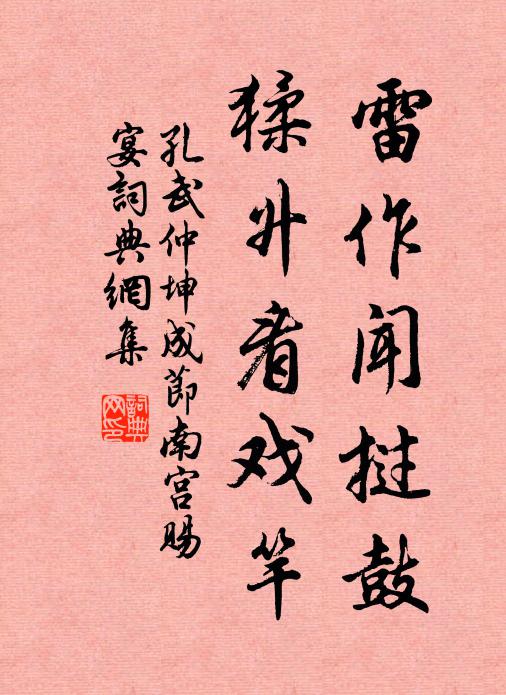 雷作闻挝鼓
猱升看戏竿
孔武仲坤成節南宫賜
宴詞典網集
詞典
网印